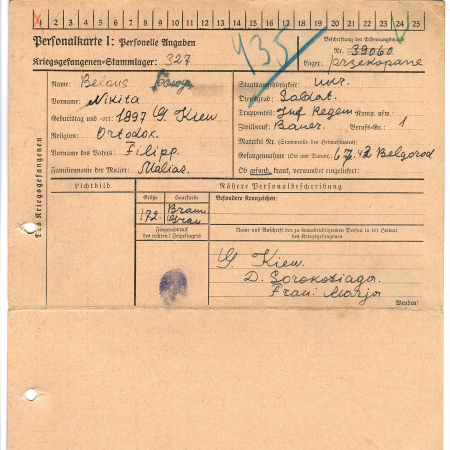 1 2 3 4 5 6 7 8 9 10 11 12 13 14 15 16 17 18 19 20 21 22 23 24 25
Personalkarte I: Personelle Angaben
Kriegsgefangenen-Stammlager: 327
935
Beschriftung der Erkennungsmarke
Nr. 39060
Lager: przekopane
Des Kriegsgefangenen
Name: Belous
Vorname: Nikita
Geburtstag und -ort: 1897 G. Kiew
Religion: Ortodok.
Vorname des Vaters: Filipp.
Familienname der Mutter:
Staatsangehörigkeit: ukr.
Dienstgrad: Soldat.
Truppenteil: Inf Regem Komp. usw.:
Zivilberuf: Bauer. Berufs-Gr.: 1
Matrikel Nr. (Stammrolle des Heimatstaates):
Gefangennahme (Ort und Datum): 6.7.42 Belgorod
Ob gesund, krank, verwundet eingeliefert:
Lichtbild
Nähere Personalbeschreibung
Größe
Haarfarbe
Besondere Kennzeichen:
172.
Braun
Grau
Fingerabdruck
des rechten! Zeigefingers
Name und Anschrift der zu benachrichtigenden Person in der Heimat
des Kriegsgefangenen
G. Kiew.
D. Sorokotiaga.
Frau: Marja
Wenden!